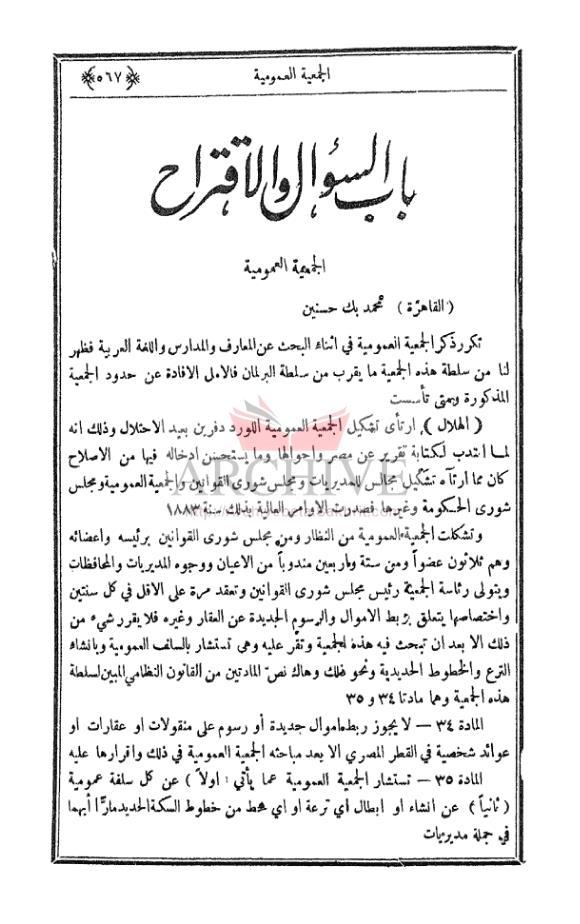 الجمعية العمومية ﴿٥٦٧﴾
باب السؤال والاقتراح
الجمعية العمومية
( القاهرة ) محمد بك حسنين
تكرر ذكر الجمعية العمومية في اثناء البحث عن المعارف والمدارس واللغة العربية فظهر
لنا من سلطة هذه الجمعية ما يقرب من سلطة البرلمان فالامل الافادة عن حدود الجمعية
المذكورة وبمتى تأسست
( الهلال ) ارتأى تشكيل الجمعية العمومية اللورد دفرين بعيد الاحتلال وذلك انه
لما انتدب لكتابة تقرير عن مصر واحوالها وما يستحسن ادخاله فيها من الاصلاح
كان مما ارتآه تشكيل مجالس للمديريات ومجلس شورى القوانين والجمعية العمومية ومجلس
شورى الحكومة وغيرها فصدرت الاوامر العالية بذلك سنة ١٨٨٣
وتشكلت الجمعية العمومية من النظار ومن مجلس شورى القوانين برئيسه واعضائه
وهم ثلاثون عضواً ومن ستة واربعين مندوباً من الاعيان ووجوه المديريات والمحافظات
ويتولى رئاسة الجمعية رئيس مجلس شورى القوانين وتعقد مرة على الاقل في كل سنتين
واختصاصها يتعلق بربط الاموال والرسوم الجديدة عن العقار وغيره فلا يقرر شيء من
ذلك الا بعد ان تبحث فيه هذه الجمعية وتقر عليه وهي تستشار بالسلف العمومية وبانشاء
الترع والخطوط الحديدية ونحو ذلك وهاك نصّ المادتين من القانون النظامي المبين لسلطة
هذه الجمعية وهما مادتا ٣٤ و ٣٥
المادة ٣٤ — لا يجوز ربط اموال جديدة أو رسوم على منقولات او عقارات او
عوائد شخصية في القطر المصري الا بعد مباحثه الجمعية العمومية في ذلك واقرارها عليه
المادة ٣٥ — تستشار الجمعية العمومية عما يأتي : اولاً ) عن كل سلفة عمومية
( ثانياً ) عن انشاء او ابطال أي ترعة او اي خط من خطوط السكة الحديد مارًّا أيهما
في جملة مديريات
ARCHIVE